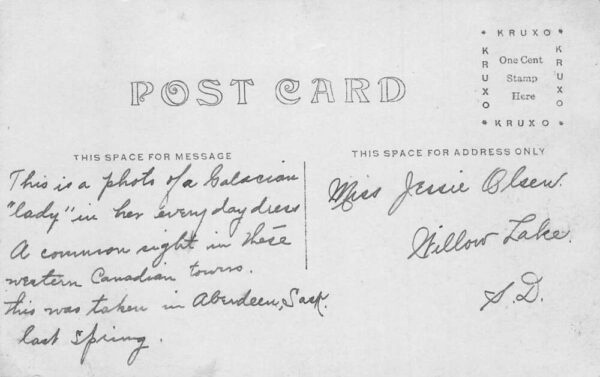 KRUXO
KRUXO
KRUXO
One Cent
Stamp
Here
KRUXO
POST CARD
THIS SPACE FOR MESSAGE
THIS SPACE FOR ADDRESS ONLY
This is a photo of a Galacian
"lady" in her every day dress
A common sight in these
western Canadian towns.
this was taken in Aberdeen, Sask.
last Spring.
Miss Jessie Olsen.
Willow Lake.
S.D.